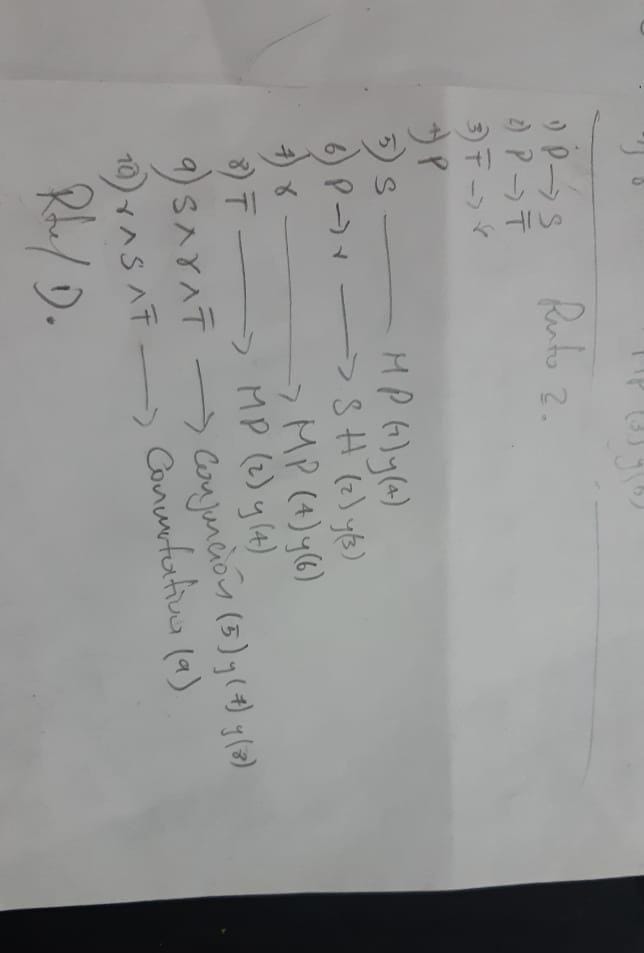 MP (3) y(6)
Punto 2.
1) P → S
2) P → T̅
3) T̅ → r
4) P
5) S —— MP (1) y (4)
6) P → r ——> SH (2) y (3)
7) r ——> MP (4) y (6)
8) T̅ ——> MP (2) y (4)
9) S ∧ r ∧ T̅ ——> Conjunción (5) y (7) y (8)
10) r ∧ S ∧ T̅ ——> Conmutativa (9)
Rta/ D.